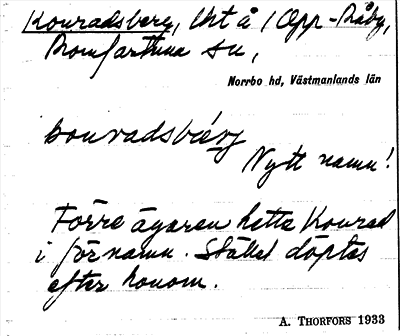 Konradsberg, lht å 1 Opp-Råby,
Romfartuna sn,
Norrbo hd, Västmanlands län
konradsbärj
Nytt namn!
Förre ägaren hette Konrad
i förnamn. Stället döptes
efter honom.
A. THORFORS 1933